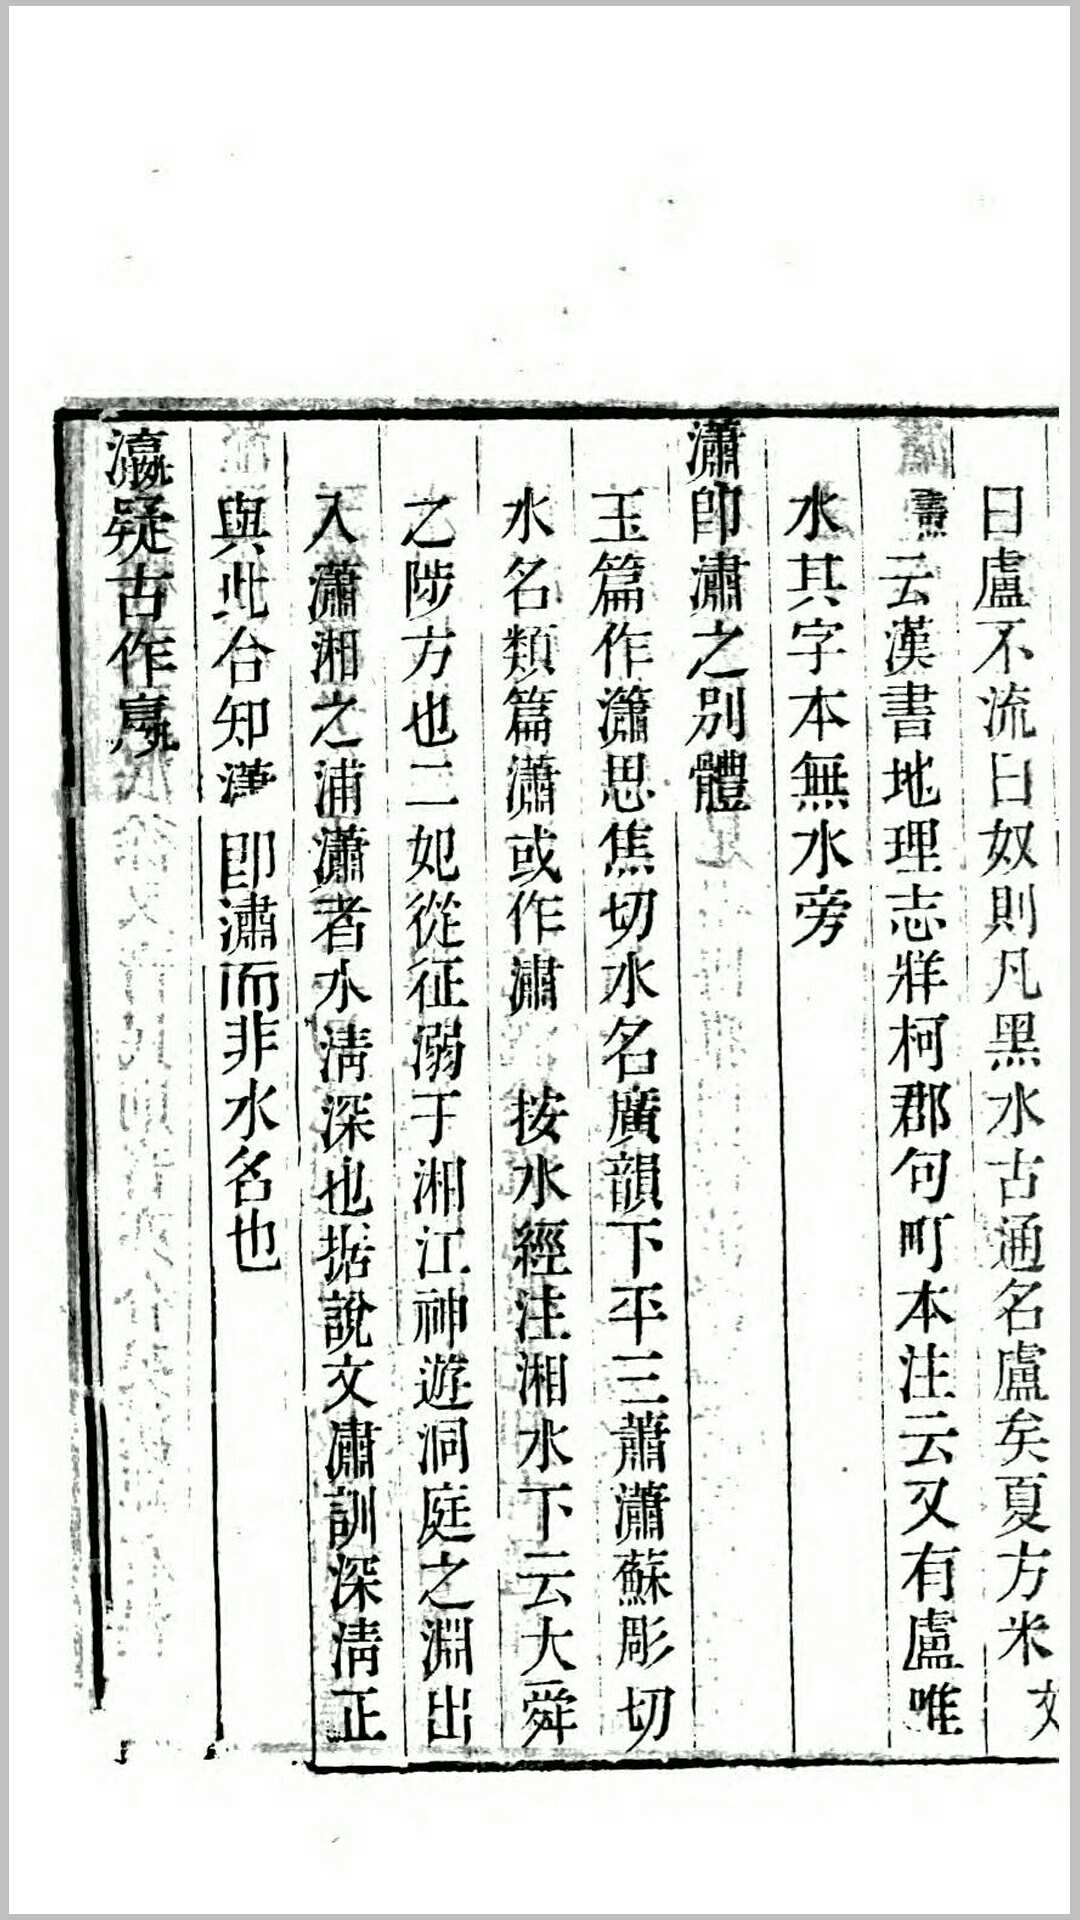 曰盧不流曰奴則凡黑水古通名盧矣夏方米
云漢書地理志牂柯郡句町本注云又有盧唯
水其字本無水旁
瀟卽潚之別體
玉篇作瀟思焦切水名廣韻下平三蕭瀟蘇彫切
水名類篇瀟或作潚 按水經注湘水下云大舜
之陟方也二妃從征溺于湘江神遊洞庭之淵出
入瀟湘之浦瀟者水清深也据說文潚訓深清正
與此合知 卽潚而非水名也
瀛疑古作嬴